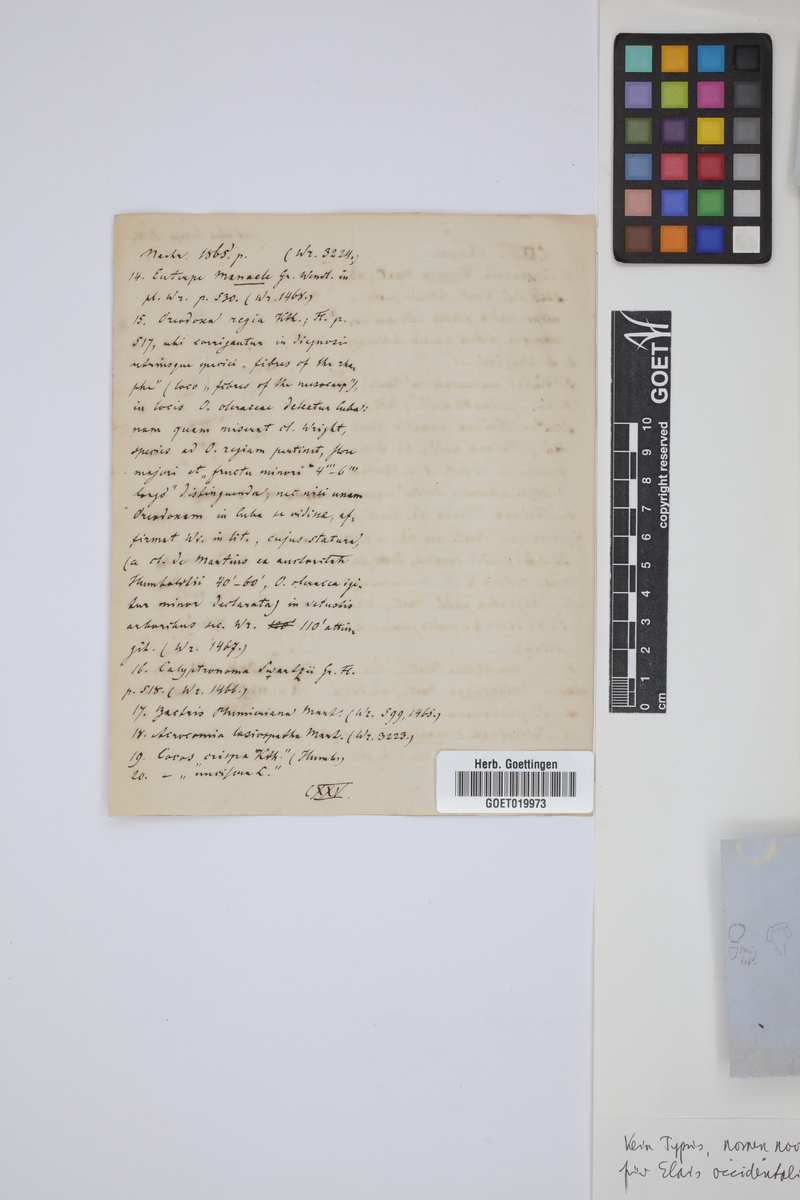 Nachr. 1865. p. (Wr. 3224.)
14. Euterpe Manaele Gr. Wendl. in
pl. Wr. p. 530. (Wr. 1468.)
15. Oreodoxa regia Kth.; Fl. p.
517, ubi corrigantur in diagnosi
utriusque speciei „fibres of the rha-
phe" (loco „fibres of the mesocarp"),
in locis O. oleraceae deleatur Cuba:
nam quam miserat cl. Wright,
species ad O. regiam pertinet, flore
majori et „fructu minori" 4'''-6'''
longo" distinguenda; nec nisi unam
Oreodoxam in Cuba se vidisse, af-
firmat Wr. in lit., cujus statura,
(a cl. de Martius ex auctoritate
Humboldtii 40'-60', O. oleracea igi-
tur minor declarata) in vetustis
arboribus sec. Wr. 110' attin-
git. (Wr. 1467.)
16. Calyptronoma Swartzii Gr. Fl.
p. 518. (Wr. 1466.)
17. Bactris Plumieriana Mart. (Wr. 599, 1465.)
18. Acrocomia lasiospatha Mart. (Wr. 3223.)
19. Cocos „crispa Kth." (Humb.)
20. — „nucifera L."
CXXV.
Herb. Goettingen
GOET019973
GOET
copyright reserved
0 1 2 3 4 5 6 7 8 9 10
cm
Kein Typus, nomen nov
für Elais occidentali